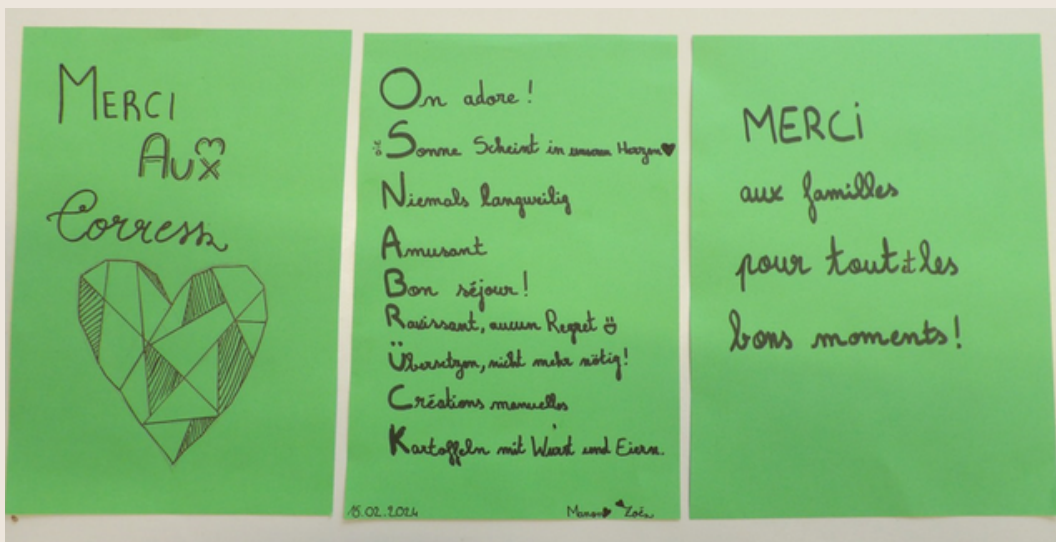 MERCI
AUX
Corress
On adore !
die Sonne Scheint in unseren Herzen
Niemals langweilig
Amusant
Bon séjour !
Ravissant, aucun Regret
Übersetzen, nicht mehr nötig!
Créations manuelles
Kartoffeln mit Wurst und Eiern.
15.02.2024
Manon Zoé
MERCi
aux familles
pour tout et les
bons moments !